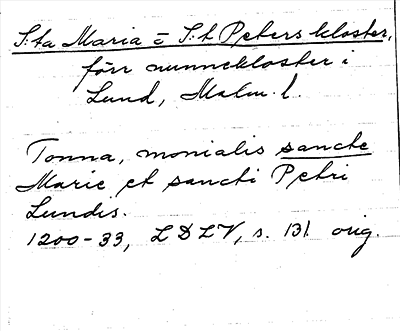 S:ta Maria o S:t Peters kloster,
förr nunnekloster i
Lund, Malm. l.
Tonna, monialis sancte
Marie et sancti Petri
Lundis.
1200-33, LDLV, s. 131 orig.